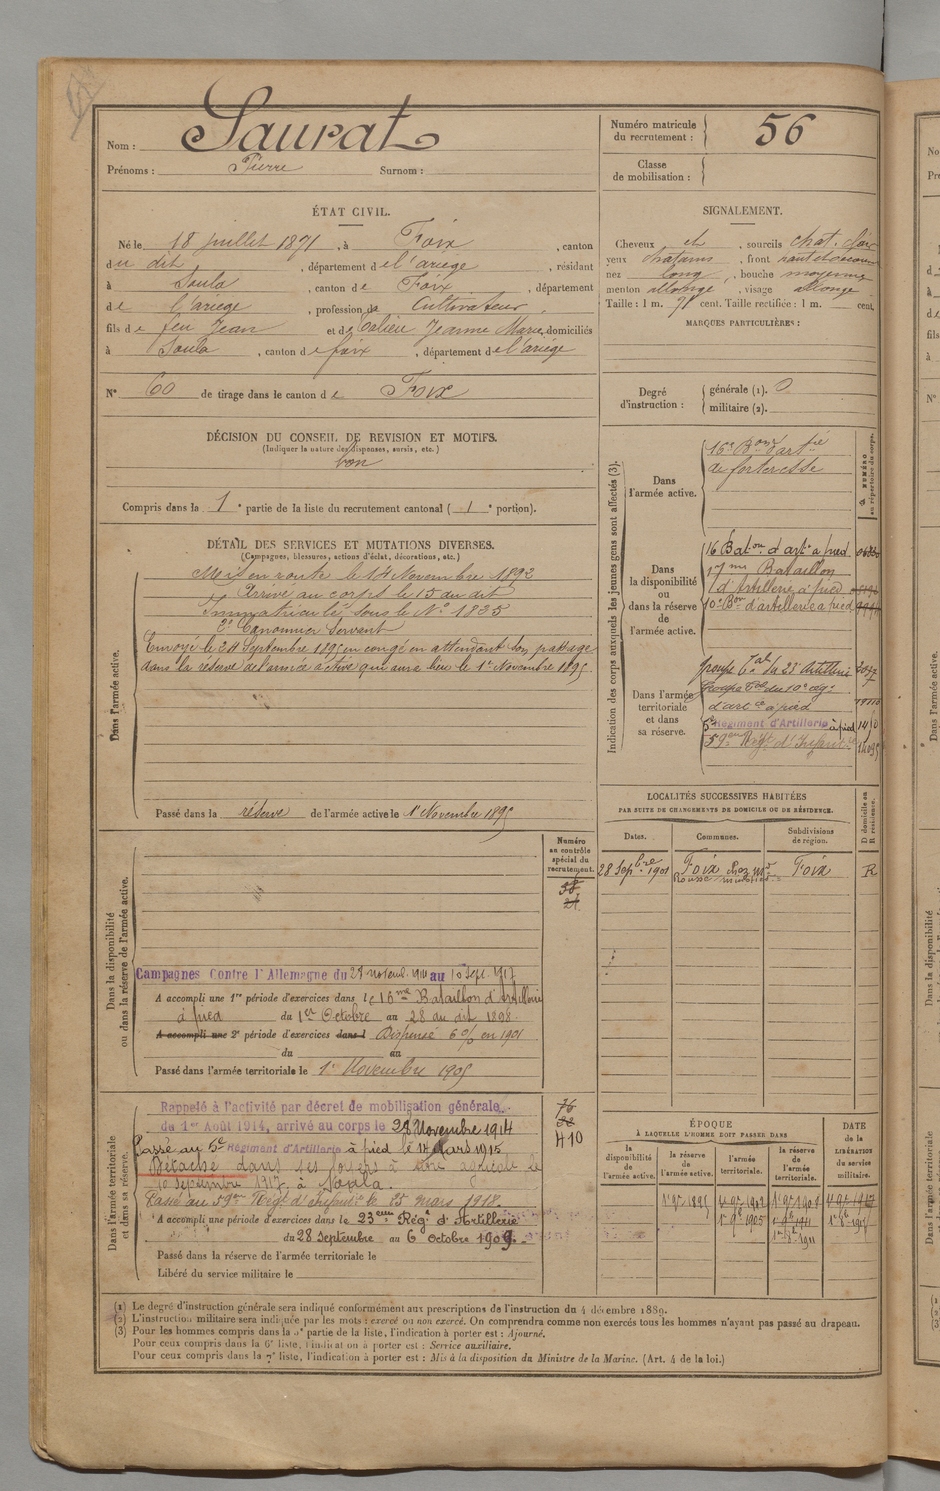 Nom : Saurat
Prénoms : Pierre Surnom :
Numéro matricule du recrutement : 56
Classe de mobilisation :
ÉTAT CIVIL.
Né le 18 juillet 1871, à Foix, canton
du dit, département de l'ariège, résidant
à Soula, canton de Foix, département
de l'ariège, profession de Cultivateur
fils de feu Jean et de Jeanne Marie, domiciliés
à Soula, canton de foix, département de l'ariège
N° 60 de tirage dans le canton de Foix
SIGNALEMENT.
Cheveux et, sourcils chat. clair
yeux chatains, front
nez long, bouche moyenne
menton allongé, visage allongé
Taille : 1 m. cent. Taille rectifiée : 1 m. cent.
MARQUES PARTICULIÈRES :
Degré d'instruction : générale (1). 0
militaire (2).
DÉCISION DU CONSEIL DE REVISION ET MOTIFS.
(Indiquer la nature des dispenses, sursis, etc.)
bon
Compris dans la 1e partie de la liste du recrutement cantonal ( 1e portion).
DÉTAIL DES SERVICES ET MUTATIONS DIVERSES.
(Campagnes, blessures, actions d'éclat, décorations, etc.)
Dans l'armée active.
Mis en route le 14 Novembre 1892
Arrivé au corps le 15 du dit
Immatriculé sous le N° 1835
2e Canonnier Servant
Envoyé le 24 Septembre 1895 en congé en attendant son passage
dans la réserve de l'armée active qui aura lieu le 1er Novembre 1895.
Passé dans la réserve de l'armée active le 1er Novembre 1895
Indication des corps auxquels les jeunes gens sont affectés (3).
NUMÉRO au répertoire du corps.
Dans l'armée active.
16e Bon d'artie
de forteresse
Dans la disponibilité ou dans la réserve de l'armée active.
16 Baton d'artie à pied
17me Bataillon
d'Artillerie à pied
10e Bon d'artillerie à pied
Dans l'armée territoriale et dans sa réserve.
Groupe tal du 23 Artillerie
d'artie à pied
5e Régiment d'Artillerie à pied
59eme Regt d'Infanterie
LOCALITÉS SUCCESSIVES HABITÉES
PAR SUITE DE CHANGEMENTS DE DOMICILE OU DE RÉSIDENCE.
Dates. Communes. Subdivisions de région. D domicile ou R résidence.
28 Sepbre 1901 Foix chez Md Foix R
Dans la disponibilité ou dans la réserve de l'armée active.
Numéro au contrôle spécial du recrutement.
Campagnes Contre l'Allemagne du 28 novemb. 1914 au 10 Sept. 1917
A accompli une 1re période d'exercices dans le 16me Bataillon d'Artillerie
à pied du 1er Octobre au 28 du dit 1898.
A accompli une 2e période d'exercices dans l Dispensé 6 % en 1901
du au
Passé dans l'armée territoriale le 1er Novembre 1905
Dans l'armée territoriale et dans sa réserve.
76
410
Rappelé à l'activité par décret de mobilisation générale
du 1er Août 1914, arrivé au corps le 28 Novembre 1914
Passé au 5e Régiment d'Artillerie à pied le 14 Mars 1915
Détaché dans ses foyers à titre agricole le
10 septembre 1917, à
Passé au 59eme Regt d'Infanterie le 25 mars 1918.
A accompli une période d'exercices dans le 23eme Régt d'Artillerie
du 28 Septembre au 6 Octobre 1909.
Passé dans la réserve de l'armée territoriale le
Libéré du service militaire le
ÉPOQUE
À LAQUELLE L'HOMME DOIT PASSER DANS
la disponibilité de l'armée active. la réserve de l'armée active. l'armée territoriale. la réserve de l'armée territoriale.
DATE de la LIBÉRATION du service militaire.
1er 9bre 1895
1er 9bre 1905
(1) Le degré d'instruction générale sera indiqué conformément aux prescriptions de l'instruction du 4 décembre 1889.
(2) L'instruction militaire sera indiquée par les mots : exercé ou non exercé. On comprendra comme non exercés tous les hommes n'ayant pas passé au drapeau.
(3) Pour les hommes compris dans la 5e partie de la liste, l'indication à porter est : Ajourné.
Pour ceux compris dans la 6e liste, l'indication à porter est : Service auxiliaire.
Pour ceux compris dans la 7e liste, l'indication à porter est : Mis à la disposition du Ministre de la Marine. (Art. 4 de la loi.)